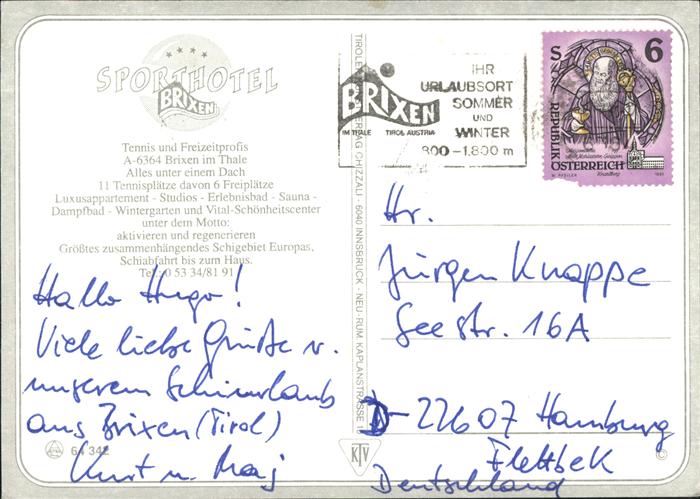 SPORTHOTEL
BRIXEN
Tennis und Freizeitprofis
A-6364 Brixen im Thale
Alles unter einem Dach
11 Tennisplätze davon 6 Freiplätze
Luxusappartement - Studios - Erlebnisbad - Sauna -
Dampfbad - Wintergarten und Vital-Schönheitscenter
unter dem Motto:
aktivieren und regenerieren
Größtes zusammenhängendes Schigebiet Europas,
Schiabfahrt bis zum Haus.
Tel. 0 53 34/81 91
Hallo Hugo!
Viele liebe Grüße v.
unserem Schiurlaub
aus Brixen (Tirol)
Kurt u.
64 342
CHIZZALI - 6040 INNSBRUCK - NEU-RUM, KAPLANSTRASSE
KTV
BRIXEN
IM THALE TIROL AUSTRIA
IHR
URLAUBSORT
SOMMER
UND
WINTER
800 - 1.800 m
S 6
REPUBLIK
ÖSTERREICH
Hr.
Jürgen Knappe
Seestr. 16A
D-22607 Hamburg
Flottbek
Deutschland